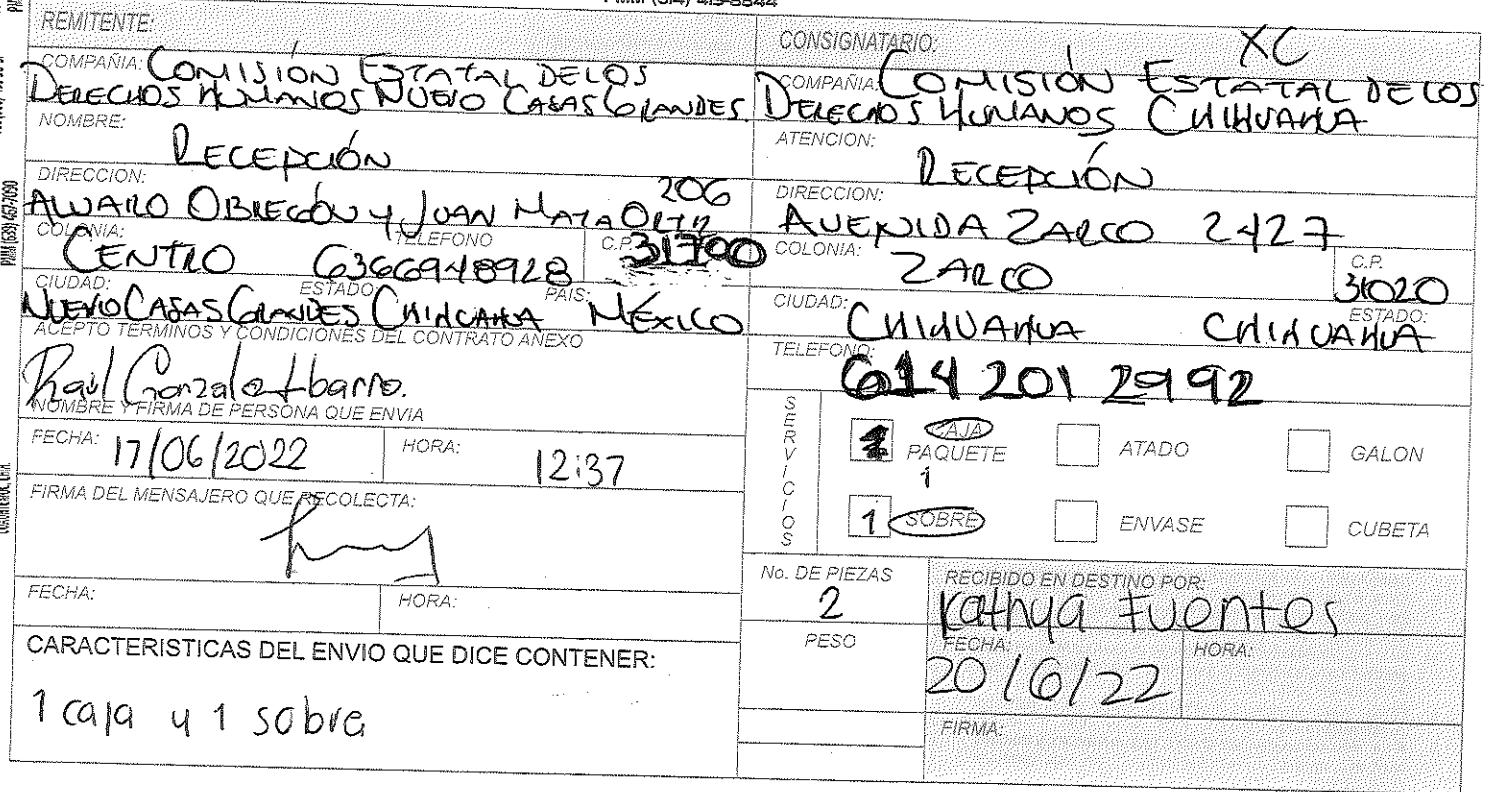 REMITENTE:
COMPAÑIA: COMISIÓN ESTATAL DE LOS
DERECHOS HUMANOS NUEVO CASAS GRANDES
NOMBRE:
RECEPCIÓN
DIRECCION: 206
ALVARO OBREGÓN Y JUAN MATA ORTIZ
COLONIA: TELEFONO C.P. 31700
CENTRO 6366948928
CIUDAD: ESTADO: PAIS:
NUEVO CASAS GRANDES CHIHUAHUA MÉXICO
ACEPTO TERMINOS Y CONDICIONES DEL CONTRATO ANEXO
Raúl Gonzalo Ibarro.
NOMBRE Y FIRMA DE PERSONA QUE ENVIA
FECHA: 17/06/2022 HORA: 12:37
FIRMA DEL MENSAJERO QUE RECOLECTA:
FECHA: HORA:
CARACTERISTICAS DEL ENVIO QUE DICE CONTENER:
1 caja y 1 sobre
CONSIGNATARIO: XC
COMPAÑIA: COMISIÓN ESTATAL DE LOS
DERECHOS HUMANOS CHIHUAHUA
ATENCION:
RECEPCIÓN
DIRECCION:
AVENIDA ZARCO 2427
COLONIA: ZARCO C.P. 31020
CIUDAD: ESTADO:
CHIHUAHUA CHIHUAHUA
TELEFONO:
614 201 2992
SERVICIOS
1 CAJA
PAQUETE ATADO GALON
1
1 SOBRE ENVASE CUBETA
No. DE PIEZAS
2
PESO
RECIBIDO EN DESTINO POR:
Kathya Fuentes
FECHA: HORA:
20/6/22
FIRMA: